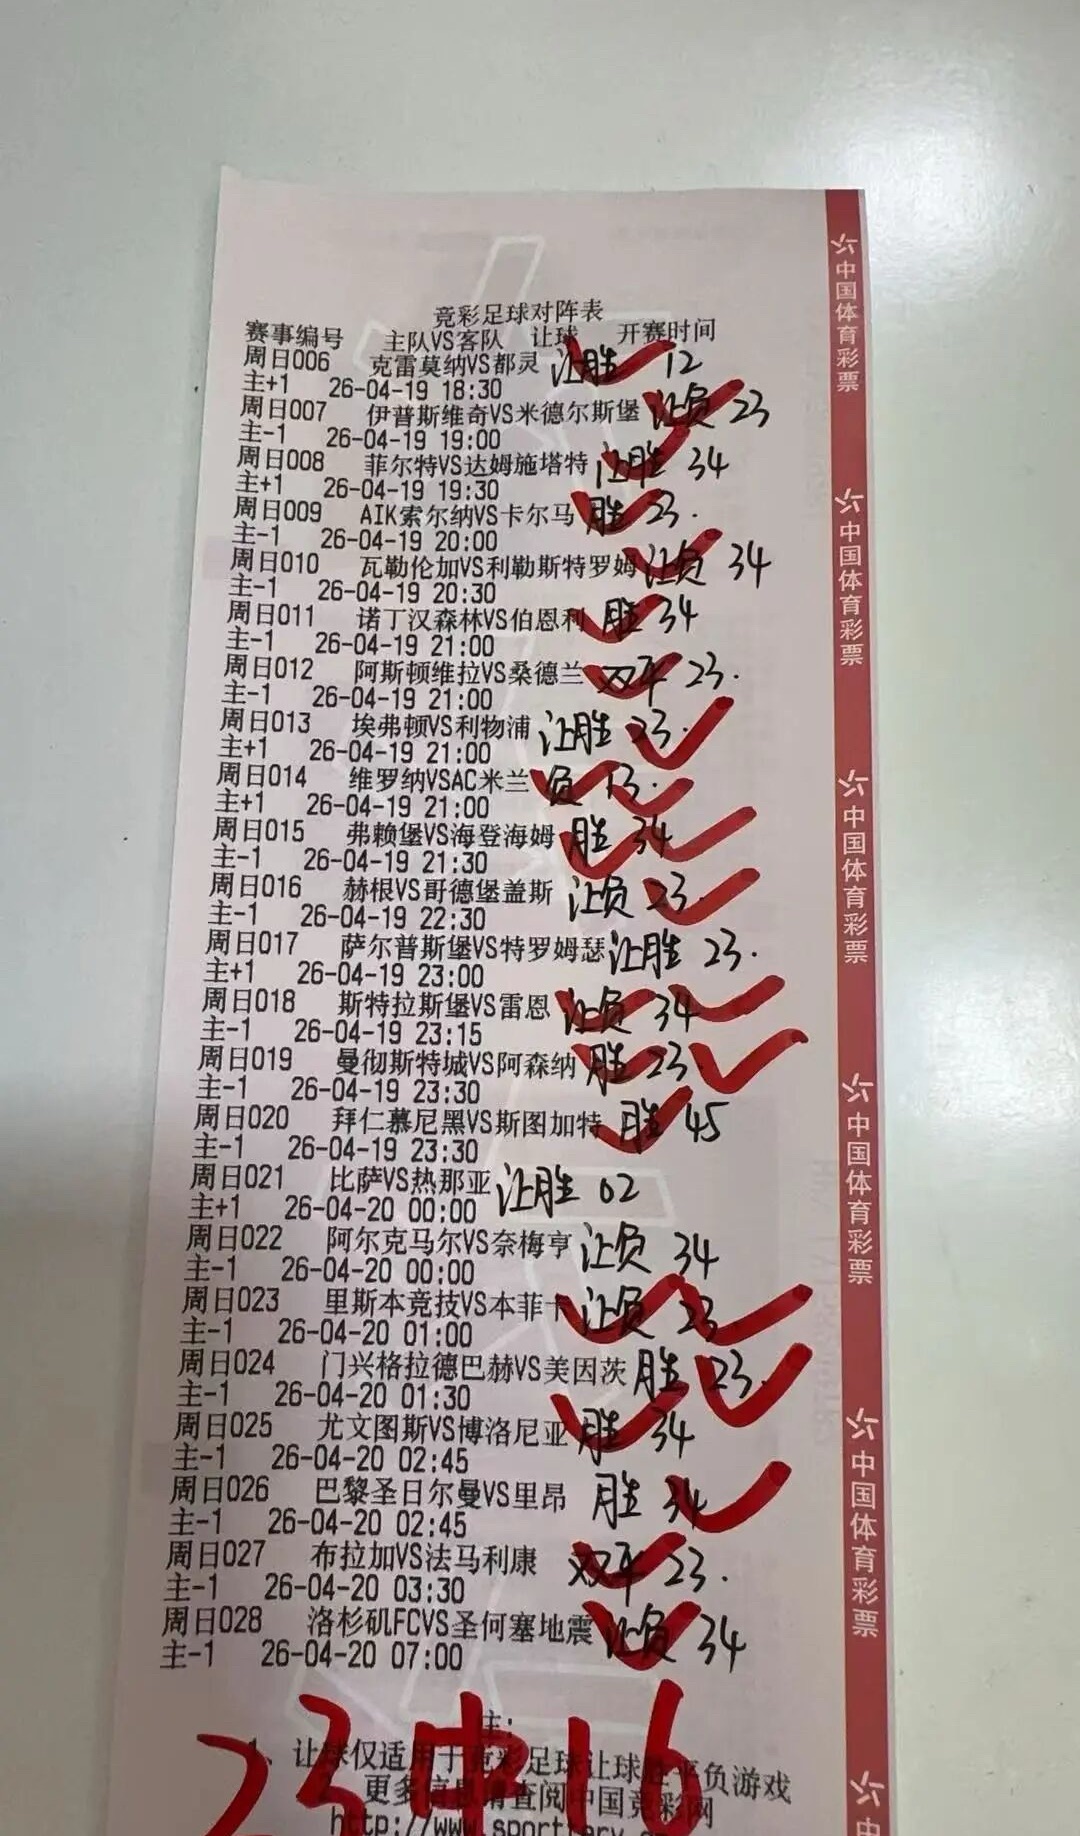 竞彩足球对阵表
赛事编号 主队VS客队 让球 开赛时间
周日006 克雷莫纳VS都灵 让胜 12
主+1 26-04-19 18:30
周日007 伊普斯维奇VS米德尔斯堡 让负 23
主-1 26-04-19 19:00
周日008 菲尔特VS达姆施塔特 让胜 34
主+1 26-04-19 19:30
周日009 AIK索尔纳VS卡尔马 胜 23.
主-1 26-04-19 20:00
周日010 瓦勒伦加VS利勒斯特罗姆 让负 34
主-1 26-04-19 20:30
周日011 诺丁汉森林VS伯恩利 胜 34
主-1 26-04-19 21:00
周日012 阿斯顿维拉VS桑德兰 双平 23.
主-1 26-04-19 21:00
周日013 埃弗顿VS利物浦 让胜 23.
主+1 26-04-19 21:00
周日014 维罗纳VSAC米兰 负 13.
主+1 26-04-19 21:00
周日015 弗赖堡VS海登海姆 胜 34
主-1 26-04-19 21:30
周日016 赫根VS哥德堡盖斯 让负 23.
主-1 26-04-19 22:30
周日017 萨尔普斯堡VS特罗姆瑟 让胜 23.
主+1 26-04-19 23:00
周日018 斯特拉斯堡VS雷恩 让负 34
主-1 26-04-19 23:15
周日019 曼彻斯特城VS阿森纳 胜 23.
主-1 26-04-19 23:30
周日020 拜仁慕尼黑VS斯图加特 胜 45
主-1 26-04-19 23:30
周日021 比萨VS热那亚 让胜 02
主+1 26-04-20 00:00
周日022 阿尔克马尔VS奈梅亨 让负 34
主-1 26-04-20 00:00
周日023 里斯本竞技VS本菲卡 让负 23
主-1 26-04-20 01:00
周日024 门兴格拉德巴赫VS美因茨 胜 23.
主-1 26-04-20 01:30
周日025 尤文图斯VS博洛尼亚 胜 34
主-1 26-04-20 02:45
周日026 巴黎圣日尔曼VS里昂 胜 34
主-1 26-04-20 02:45
周日027 布拉加VS法马利康 双平 23.
主-1 26-04-20 03:30
周日028 洛杉矶FCVS圣何塞地震 让负 34
主-1 26-04-20 07:00
23中16
注:
1、让球仅适用于竞彩足球让球胜平负游戏
更多信息请查阅中国竞彩网
http://www.sporttery.c
中国体育彩票
中国体育彩票
中国体育彩票
中国体育彩票
中国体育彩票
中